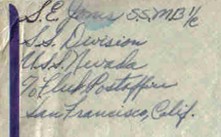 S.E. Jones S.S.M.B. 1/c
S.S. Division
U.S.S. Nevada
℅ Fleet Postoffice
San Francisco, Calif.